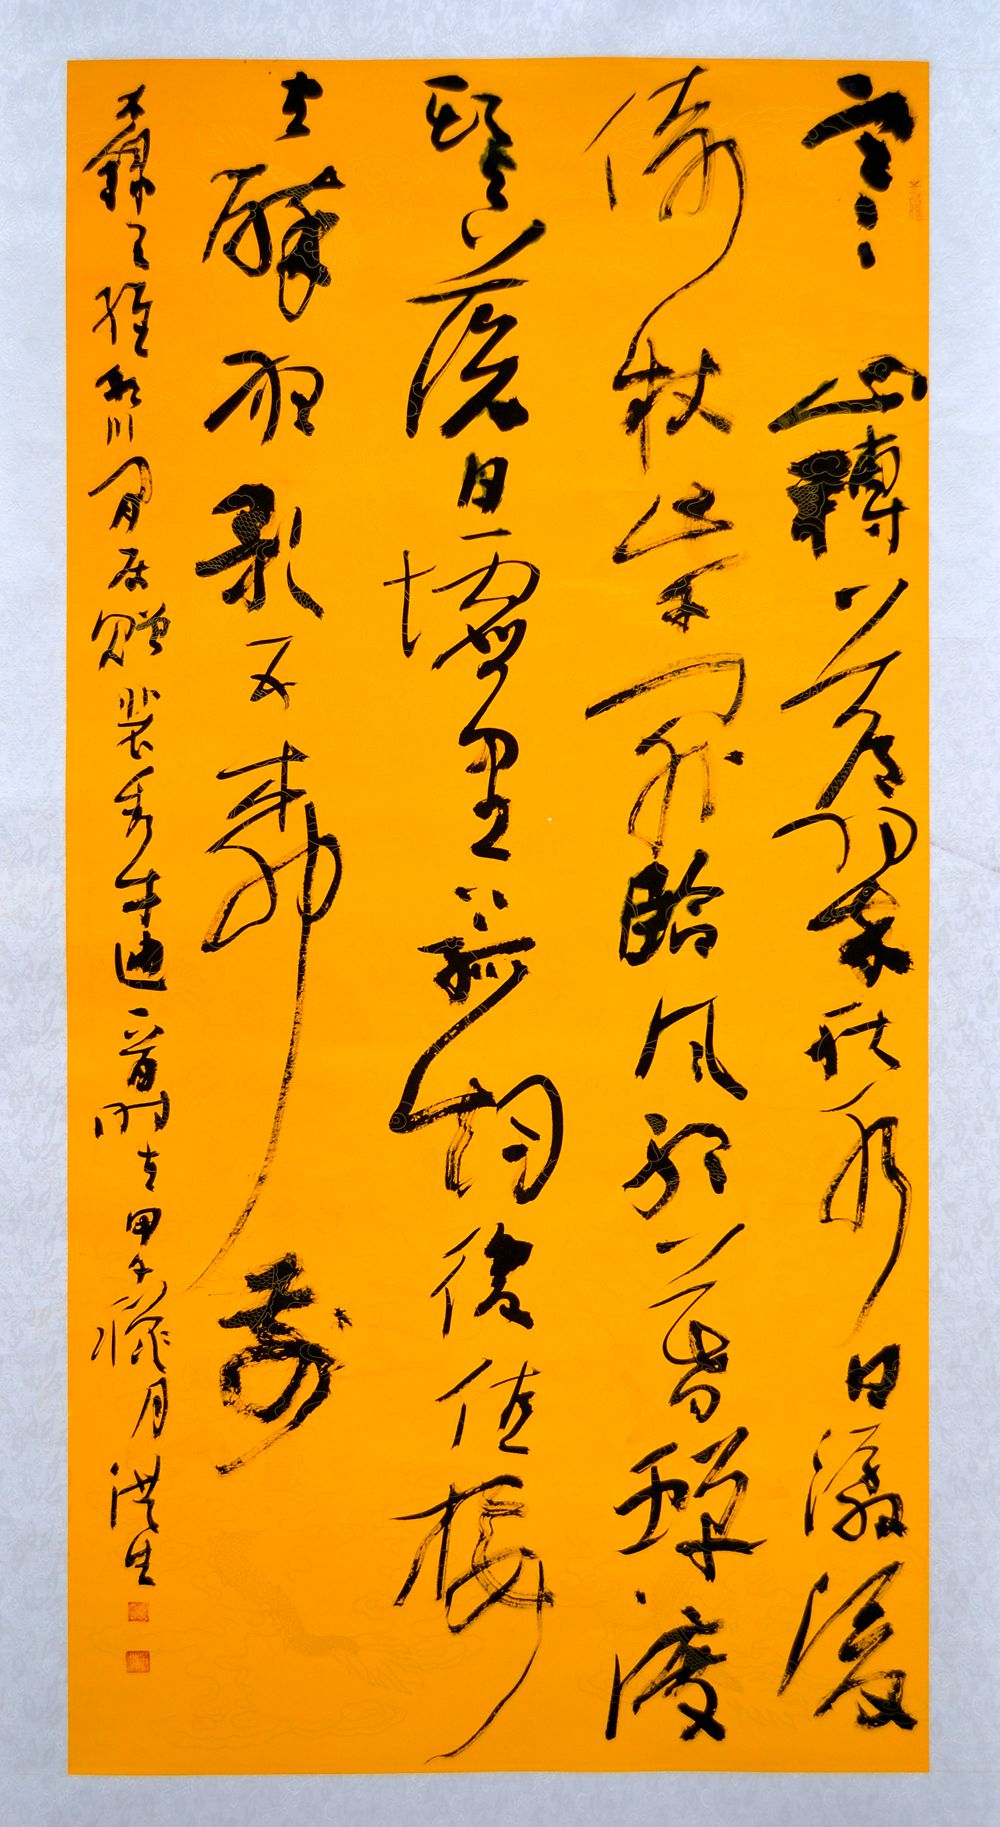 寒山轉蒼翠秋水日潺湲
倚杖柴門外臨風聽暮蟬渡
頭餘落日墟里上孤煙復值接
輿醉狂歌五柳前
右錄王維輞川閑居贈裴秀才迪一首時在甲午臘月洪生